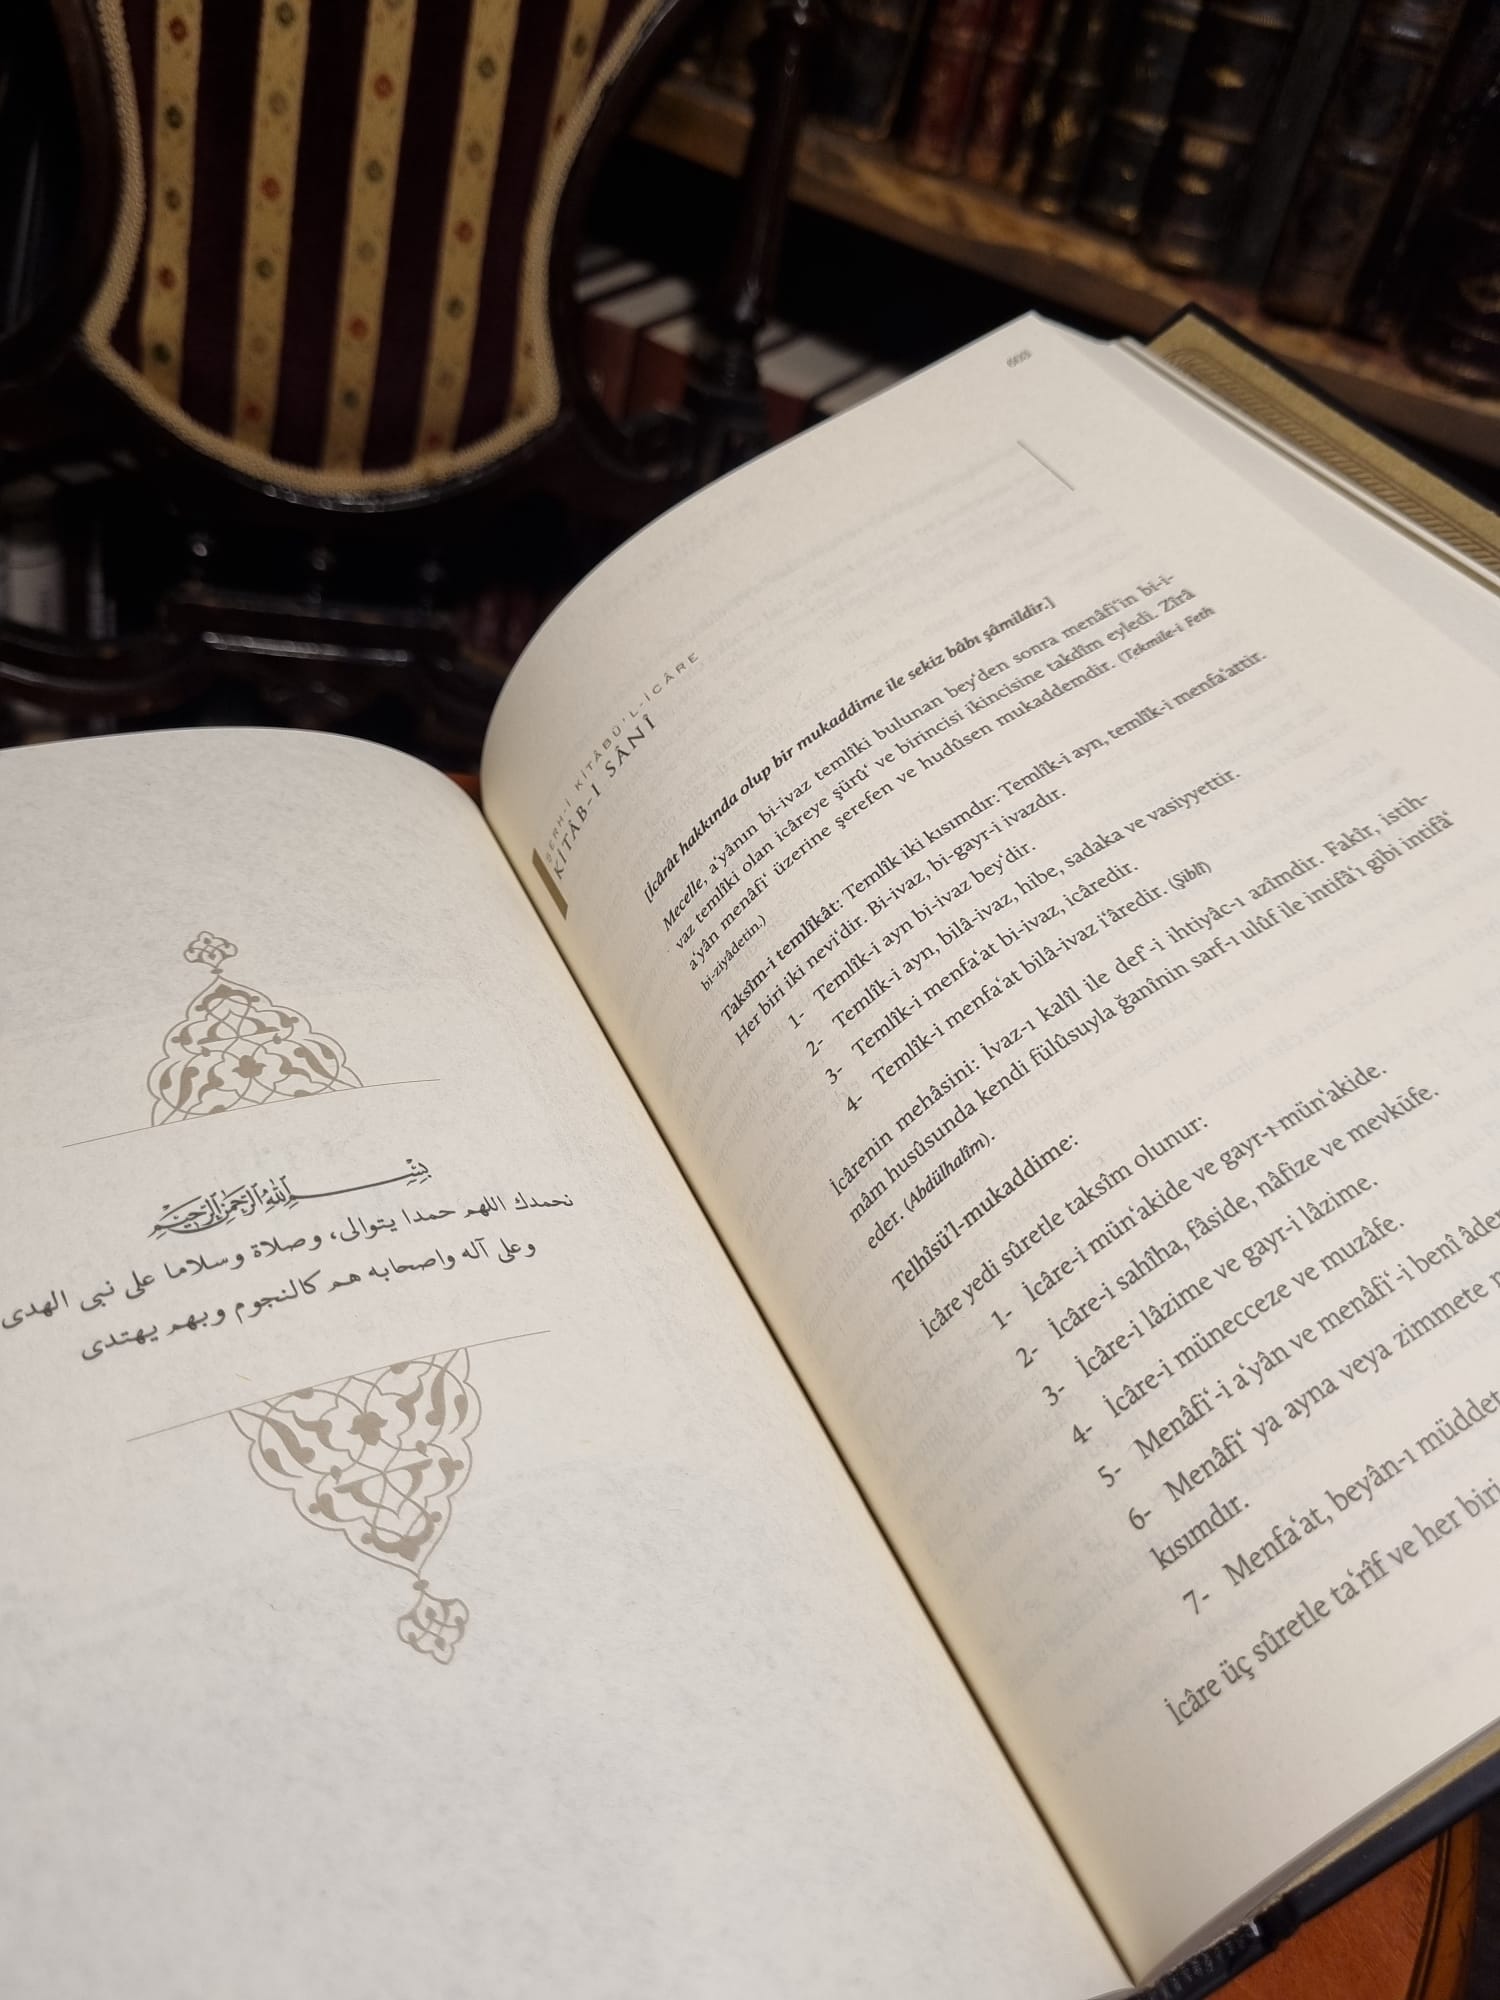 بِسْمِ اللهِ الرَّحْمٰنِ الرَّحِيْمِ
نحمدك اللهم حمدا يتوالى، وصلاة وسلاما على نبى الهدى
وعلى آله واصحابه هم كالنجوم وبهم يهتدى
ŞERH-İ KİTÂBÜ'L-İCÂRE
KİTÂB-I SÂNÎ
[İcârât hakkında olup bir mukaddime ile sekiz bâbı şâmildir.]
Mecelle, a‘yânın bi-ivaz temlîki bulunan bey‘den sonra menâfi‘in bi-i-
vaz temlîki olan icâreye şürû‘ ve birincisi ikincisine takdîm eyledi. Zîrâ
a‘yân menâfi‘ üzerine şerefen ve hudûsen mukaddemdir. (Tekmile-i Feth
bi-ziyâdetin.)
Taksîm-i temlîkât: Temlîk iki kısımdır: Temlîk-i ayn, temlîk-i menfa‘attir.
Her biri iki nevi‘dir. Bi-ivaz, bi-gayr-i ivazdır.
1- Temlîk-i ayn bi-ivaz bey‘dir.
2- Temlîk-i ayn, bilâ-ivaz, hibe, sadaka ve vasiyyettir.
3- Temlîk-i menfa‘at bi-ivaz, icâredir.
4- Temlîk-i menfa‘at bilâ-ivaz i‘âredir. (Şiblî)
İcârenin mehâsini: İvaz-ı kalîl ile def‘-i ihtiyâc-ı azîmdir. Fakîr, istih-
mâm husûsunda kendi fülûsuyla ğanînin sarf-ı ulûf ile intifâ‘ı gibi intifâ‘
eder. (Abdülhalîm).
Telhîsü'l-mukaddime:
İcâre yedi sûretle taksîm olunur:
1- İcâre-i mün‘akide ve gayr-ı mün‘akide.
2- İcâre-i sahîha, fâside, nâfize ve mevkûfe.
3- İcâre-i lâzime ve gayr-i lâzime.
4- İcâre-i münecceze ve muzâfe.
5- Menâfi‘-i a‘yân ve menâfi‘-i benî
6- Menâfi‘ ya ayna veya zimmete
kısımdır.
7- Menfa‘at, beyân-ı
İcâre üç sûretle ta‘rîf ve her biri